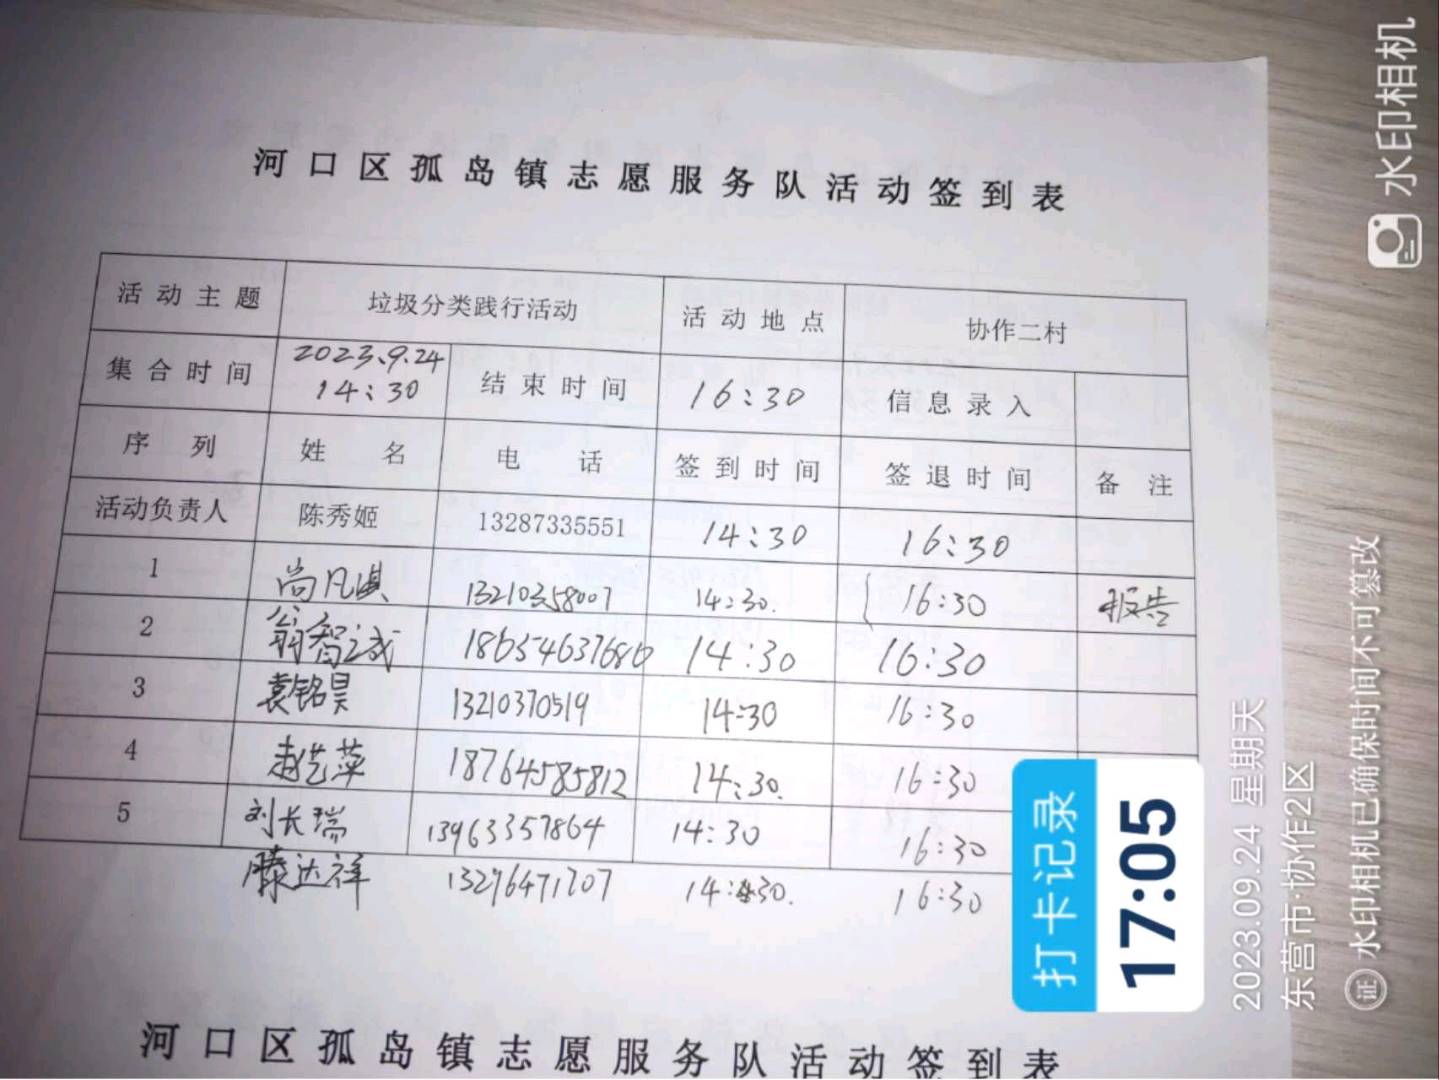 河口区孤岛镇志愿服务队活动签到表
活动主题 垃圾分类践行活动 活动地点 协作二村
集合时间 2023.9.24 14:30 结束时间 16:30 信息录入
序列 姓名 电话 签到时间 签退时间 备注
活动负责人 陈秀姬 13287335551 14:30 16:30
1 尚凡淇 13210358007 14:30. 16:30 报告
2 翁智诚 18654637686 14:30 16:30
3 袁铭昊 13210370519 14:30 16:30
4 赵艺萍 18764585812 14:30. 16:30
5 刘长瑞 13963357864 14:30 16:30
滕达祥 13296471707 14:30. 16:30
河口区孤岛镇志愿服务队活动签到表
水印相机
打卡记录
17:05
2023.09.24 星期天
东营市·协作2区
证 水印相机已确保时间不可篡改